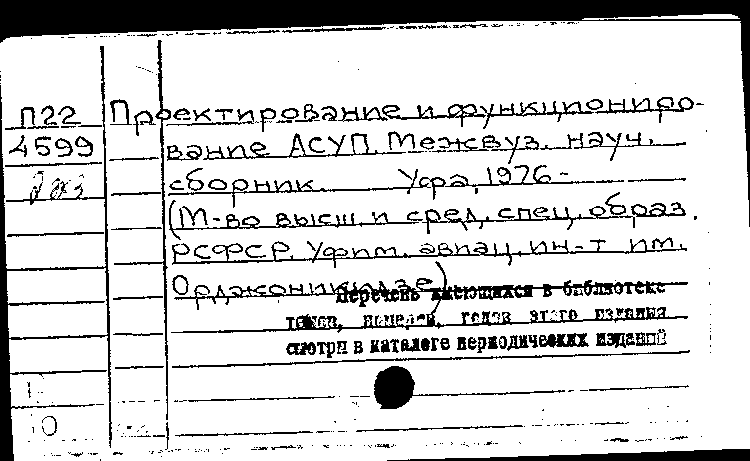 П22 Проектирование и функциониро-
4599 вание АСУП. Межвуз. науч.
2 экз сборник. Уфа, 1976-
(М-во высш. и сред. спец. образ.
РСФСР. Уфим. авиац. ин-т им.
Орджоникидзе)
Перечень имеющихся в библиотеке
томов, номеров, годов этого издания
смотри в каталоге периодических изданий